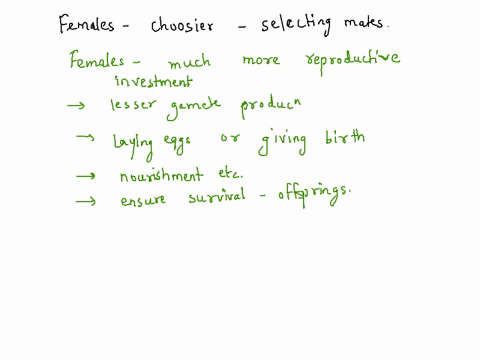 Females - choosier - selecting mates.
Females - much more reproductive
investment
→ lesser gamete producn
→ Laying eggs or giving birth
→ nourishment etc.
→ ensure survival - offsprings.